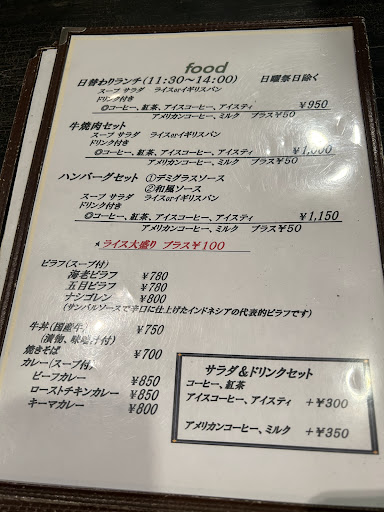 food
日替わりランチ(11:30～14:00) 日曜祭日除く
スープ サラダ ライスorイギリスパン
ドリンク付き
◎コーヒー、紅茶、アイスコーヒー、アイスティ ¥950
アメリカンコーヒー、ミルク プラス¥50
牛焼肉セット
スープ サラダ ライスorイギリスパン
ドリンク付き
◎コーヒー、紅茶、アイスコーヒー、アイスティ ¥1,000
アメリカンコーヒー、ミルク プラス¥50
ハンバーグセット ①デミグラスソース
②和風ソース
スープ サラダ ライスorイギリスパン
ドリンク付き
◎コーヒー、紅茶、アイスコーヒー、アイスティ ¥1,150
アメリカンコーヒー、ミルク プラス¥50
★ライス大盛り プラス¥100
ピラフ(スープ付)
海老ピラフ ¥780
五目ピラフ ¥780
ナシゴレン ¥800
(サンバルソースで辛口に仕上げたインドネシアの代表的ピラフです)
牛丼(国産牛) ¥750
(漬物、味噌汁付)
焼きそば ¥700
カレー(スープ付)
ビーフカレー ¥850
ローストチキンカレー ¥850
キーマカレー ¥800
サラダ&ドリンクセット
コーヒー、紅茶
アイスコーヒー、アイスティ +¥300
アメリカンコーヒー、ミルク +¥350